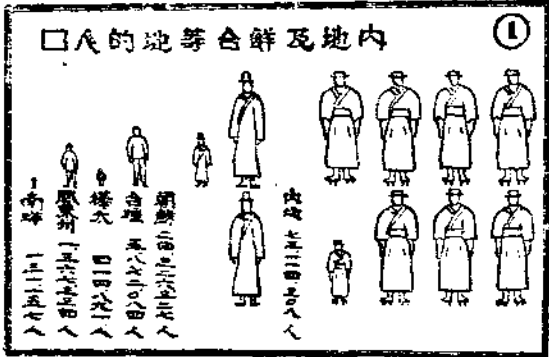 ①
内地及鮮台等地的人口
内地 七三一一四三〇八人
朝鮮 二四三二六三二七人
台灣 五八七二〇八四人
樺太 四一四八九一人
關東州 一三六七三三四人
南洋